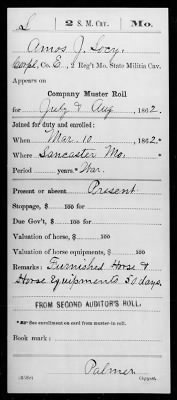 L | 2 S. M. Cav. | Mo.
Amos J. Locy
Corpl., Co. E, 2 Reg't Mo. State Militia Cav.
Appears on
Company Muster Roll
for July & Aug, 1862.
Joined for duty and enrolled:
When Mar. 10, 1862.*
Where Lancaster Mo.
Period years. War.
Present or absent Present
Stoppage, $ 100 for
Due Gov't, $ 100 for
Valuation of horse, $ 100
Valuation of horse equipments, $ 100
Remarks: Furnished Horse &
Horse Equipments 50 days.
FROM SECOND AUDITOR'S ROLL.
*See enrollment on card from muster-in roll.
Book mark:
Palmer
Copyist.